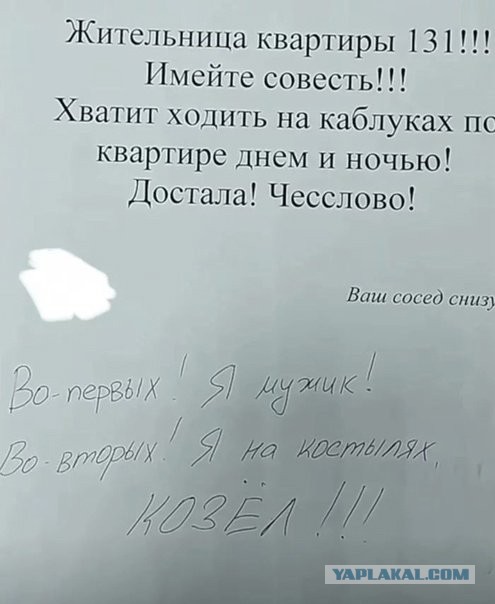 Жительница квартиры 131!!!
Имейте совесть!!!
Хватит ходить на каблуках по
квартире днем и ночью!
Достала! Чесслово!
Ваш сосед снизу
Во-первых! Я мужик!
Во-вторых! Я на костылях,
КОЗЁЛ!!!
YAPLAKAL.COM